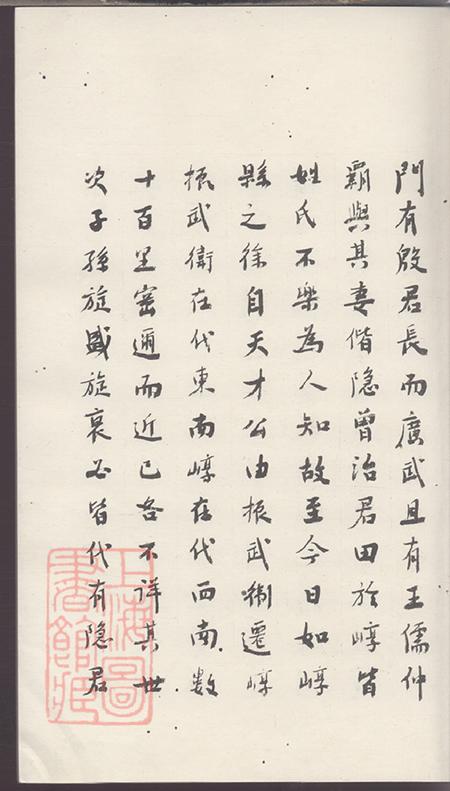 門有殷君長而廣武且有王儒仲
霸與其妻偕隐曾治君田於崞皆
姓氏不樂為人知故至今日如崞
縣之徐自天才公由振武衛遷崞
振武衛在代東南崞在代西南數
十百里密邇而近已各不詳其世
次子孫旋盛旋衰必皆代有隐君
上海圖書館藏